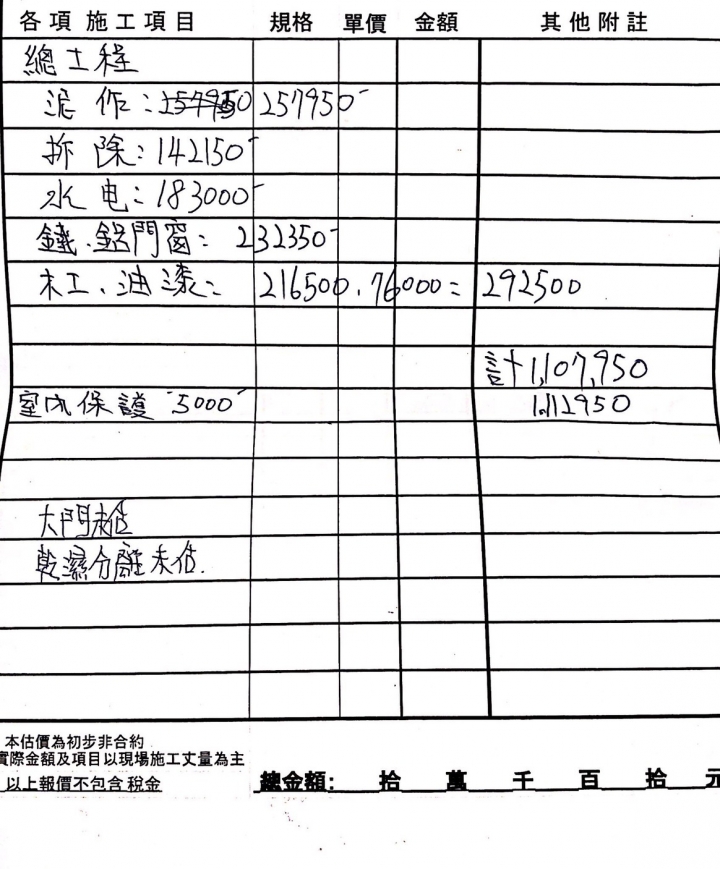 各項施工項目 規格 單價 金額 其他附註
總工程
泥作:257950-
拆除:142150-
水电:183000-
鐵.鋁門窗:232350-
木工、油漆: 216500.76000= 292500
計1,107,950
室內保護 5000-
1,112950
大門未估
乾濕分離未估.
本估價為初步非合約
實際金額及項目以現場施工丈量為主
以上報價不包含稅金 總金額: 拾 萬 千 百 拾 元